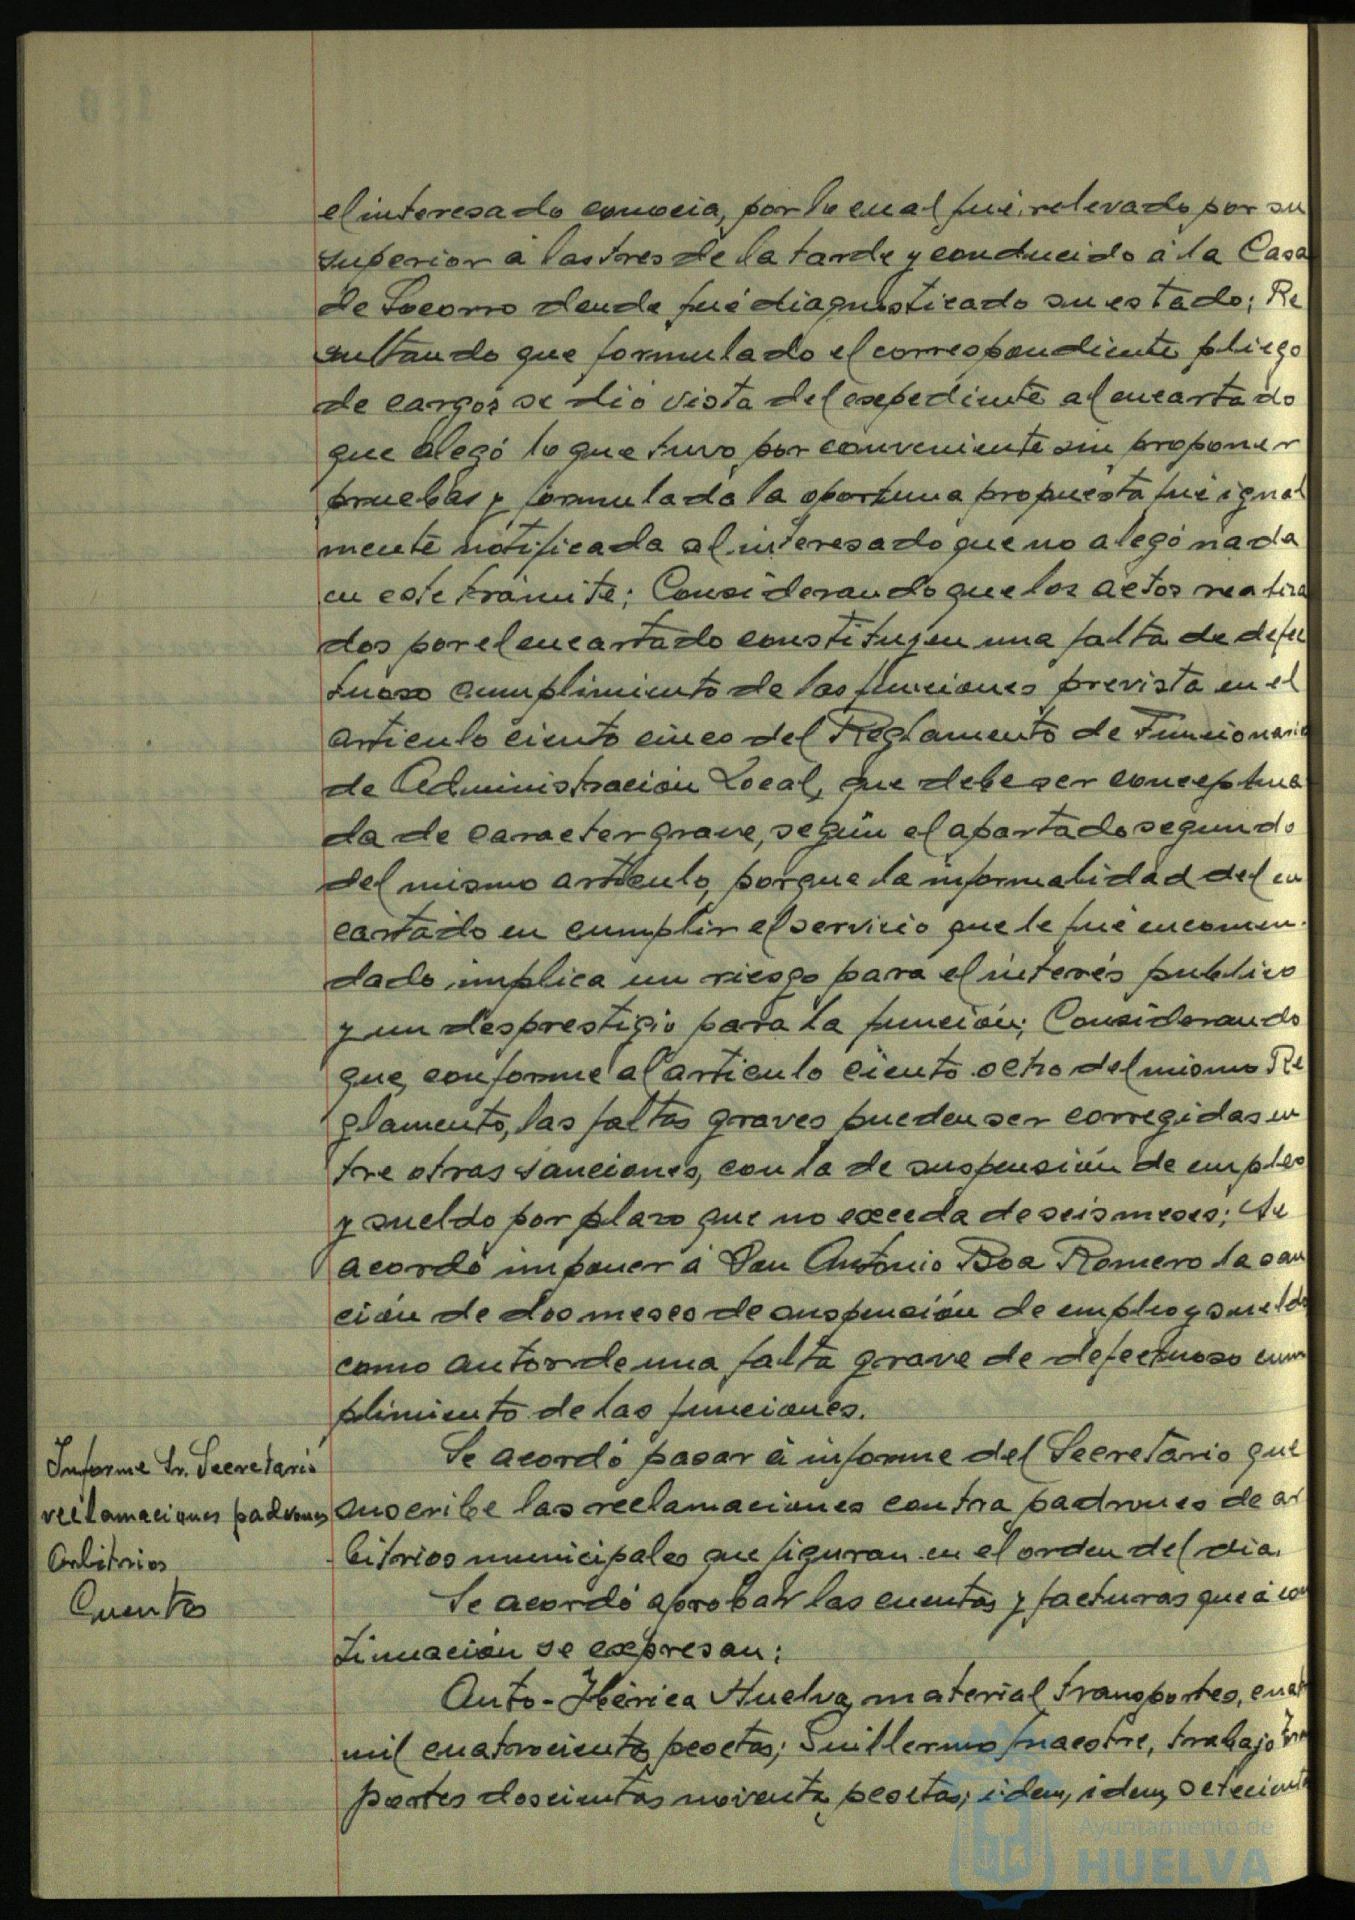 el interesado conocia, por lo cual fué relevado por su
superior á las tres de la tarde y conducido á la Casa
de Socorro donde fué diagnosticado su estado; Re
sultando que formulado el correspondiente pliego
de cargos se dió vista del expediente al encartado
que alegó lo que tuvo por conveniente sin proponer
pruebas y formulada la oportuna propuesta fué igual
mente notificada al interesado que no alegó nada
en este trámite; Considerando que los actos realiza
dos por el encartado constituyen una falta de defec
tuoso cumplimiento de las funciones prevista en el
articulo ciento cinco del Reglamento de Funcionario
de Administración Local, que debe ser conceptua
da de caracter grave, según el apartado segundo
del mismo articulo, porque la informalidad del en
cartado en cumplir el servicio que le fué encomen-
dado implica un riesgo para el interés publico
y un desprestigio para la función; Considerando
que, conforme al articulo ciento ocho del mismo Re
glamento, las faltas graves pueden ser corregidas en
tre otras sanciones, con la de suspensión de empleo
y sueldo por plazo que no exceda de seis meses; Se
acordó imponer á Don Antonio Boa Romero la san
ción de dos meses de suspensión de empleo y sueldo
como autor de una falta grave de defectuoso cum
plimiento de las funciones.
Informe Sr. Secretario
reclamaciones padrones
Arbitrios
Se acordó pasar á informe del Secretario que
suscribe las reclamaciones contra padrones de ar
bitrios municipales que figuran en el orden del dia.
Cuentas
Se acordó aprobar las cuentas y facturas que á con
tinuación se expresan:
Auto-Ibérica Huelva, material transportes, cuatro
mil cuatrocientas pesetas; Guillermo Maestre, trabajo trans
portes doscientas noventa pesetas; idem, idem, setecientas
Ayuntamiento de
HUELVA